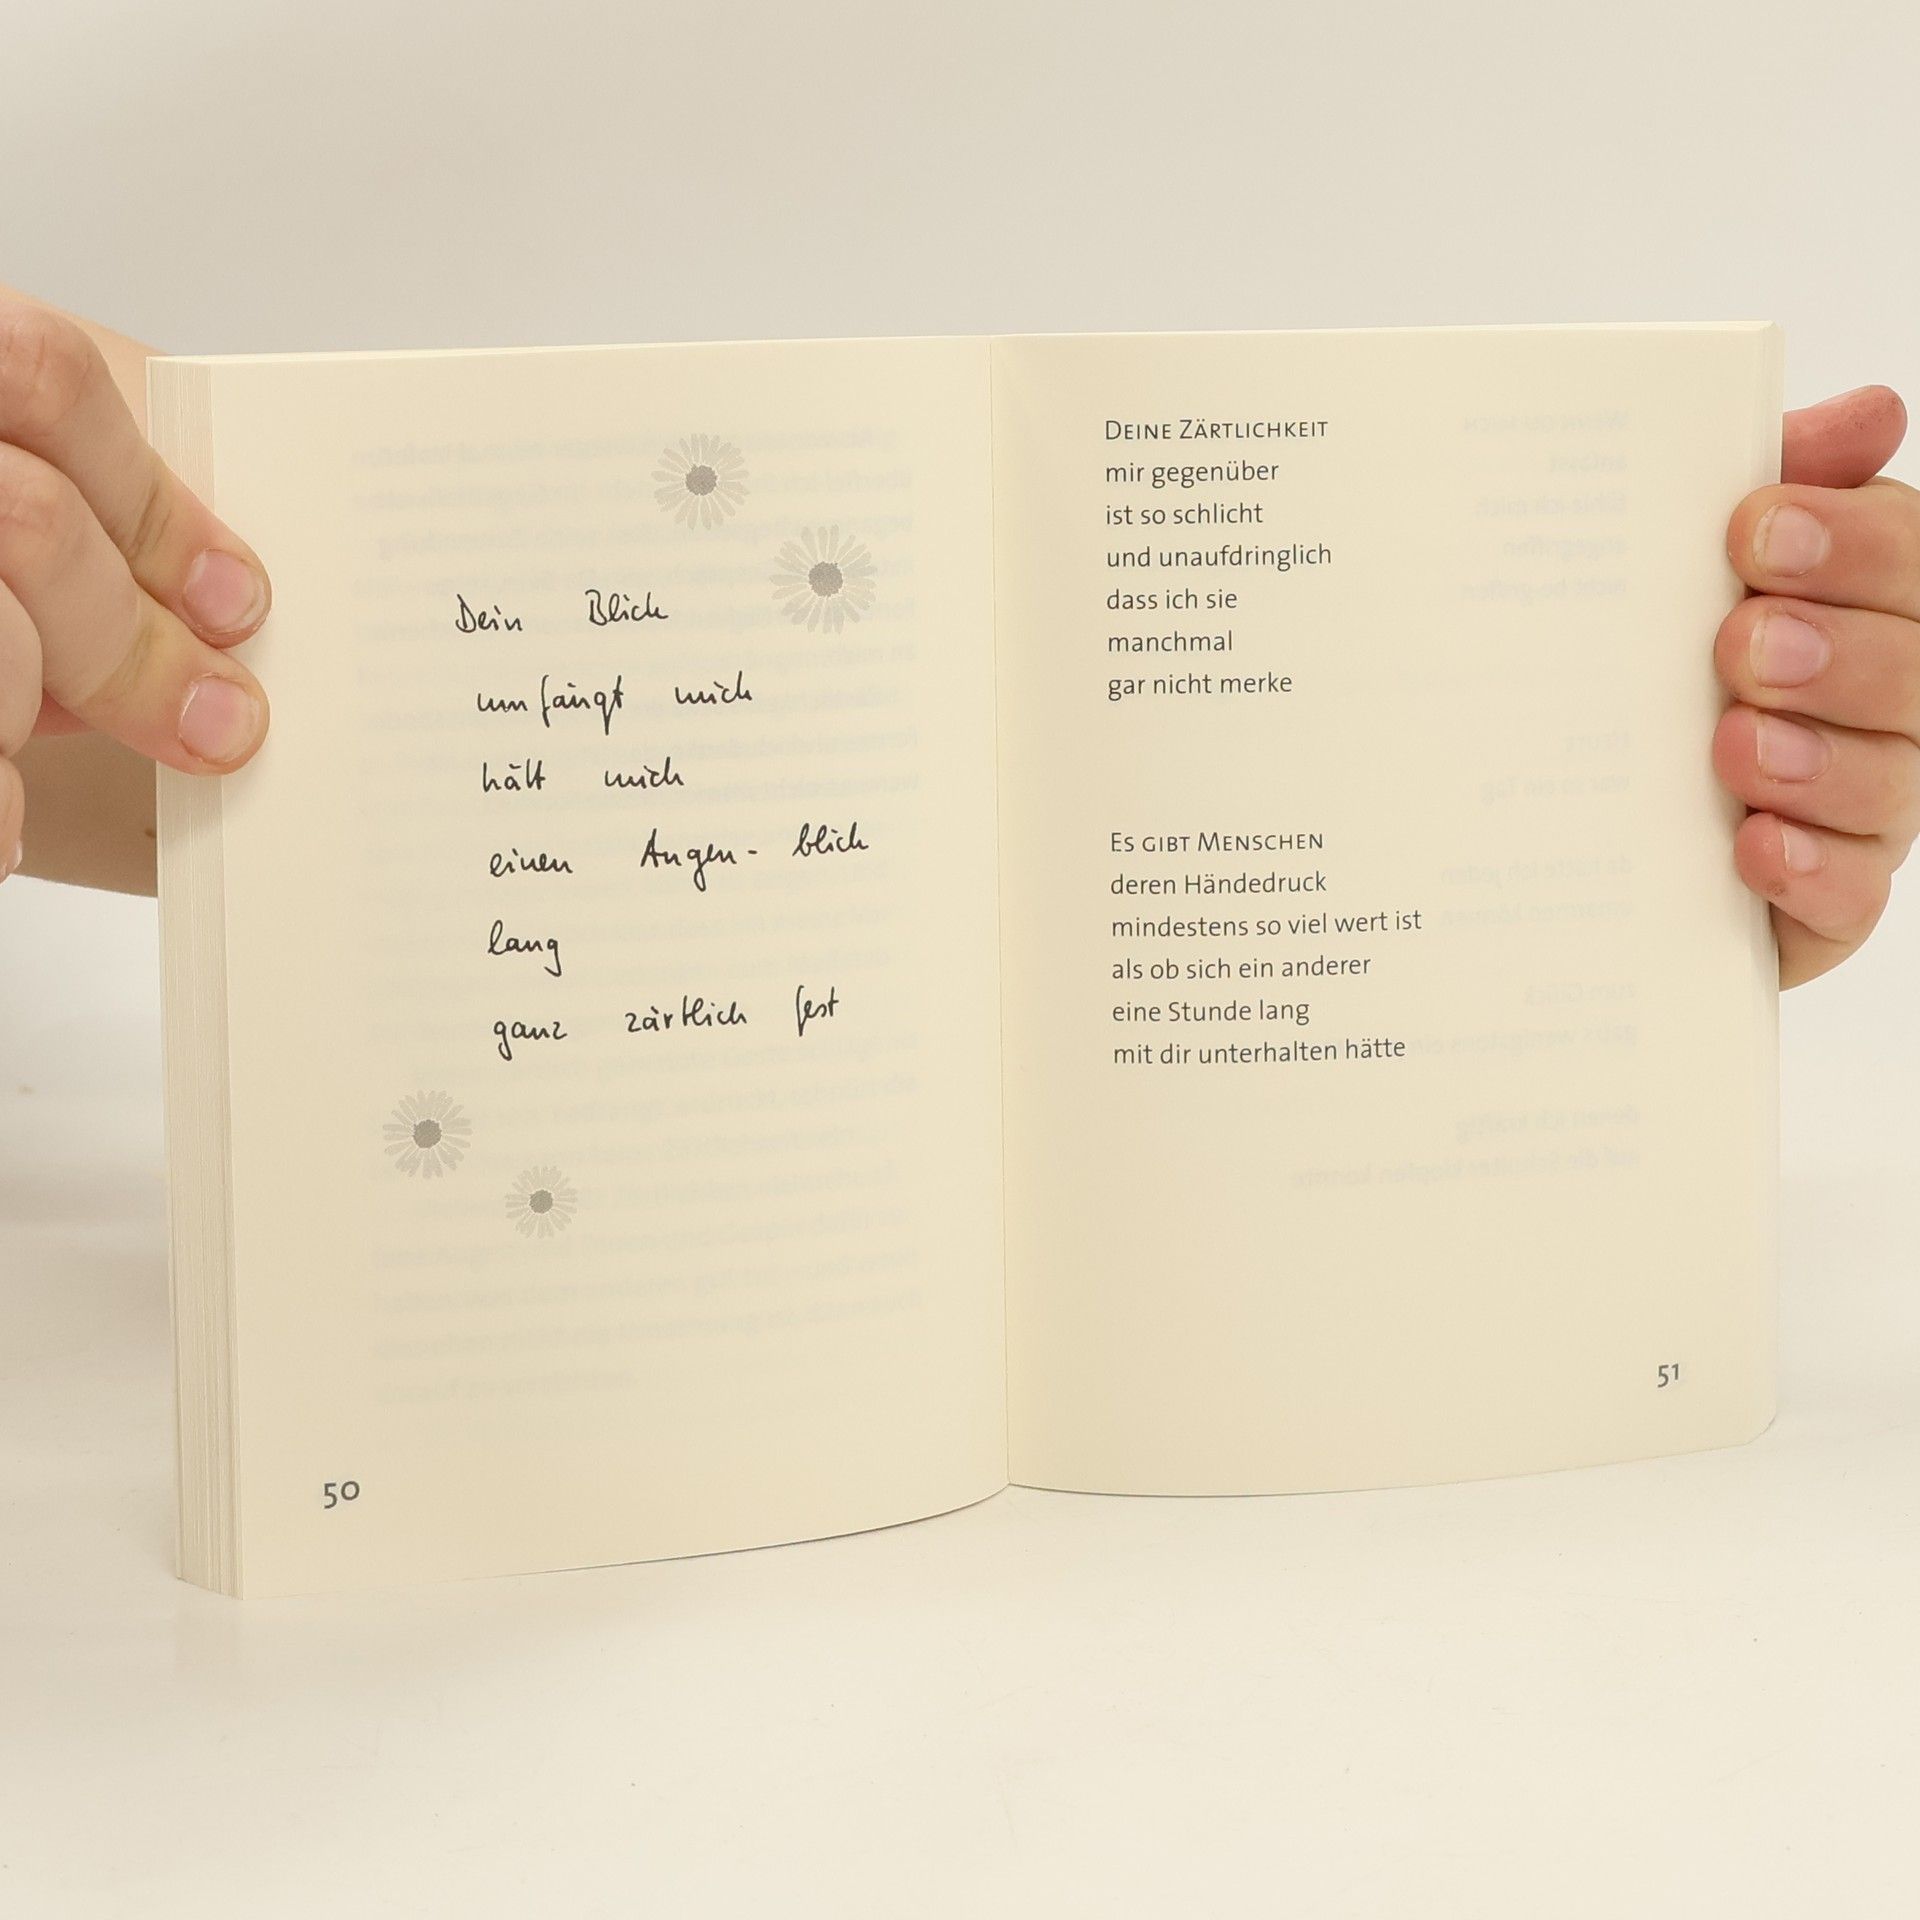 Dein Blick
umfängt mich
hält mich
einen Augen-blick
lang
ganz zärtlich fest
50
DEINE ZÄRTLICHKEIT
mir gegenüber
ist so schlicht
und unaufdringlich
dass ich sie
manchmal
gar nicht merke
ES GIBT MENSCHEN
deren Händedruck
mindestens so viel wert ist
als ob sich ein anderer
eine Stunde lang
mit dir unterhalten hätte
51